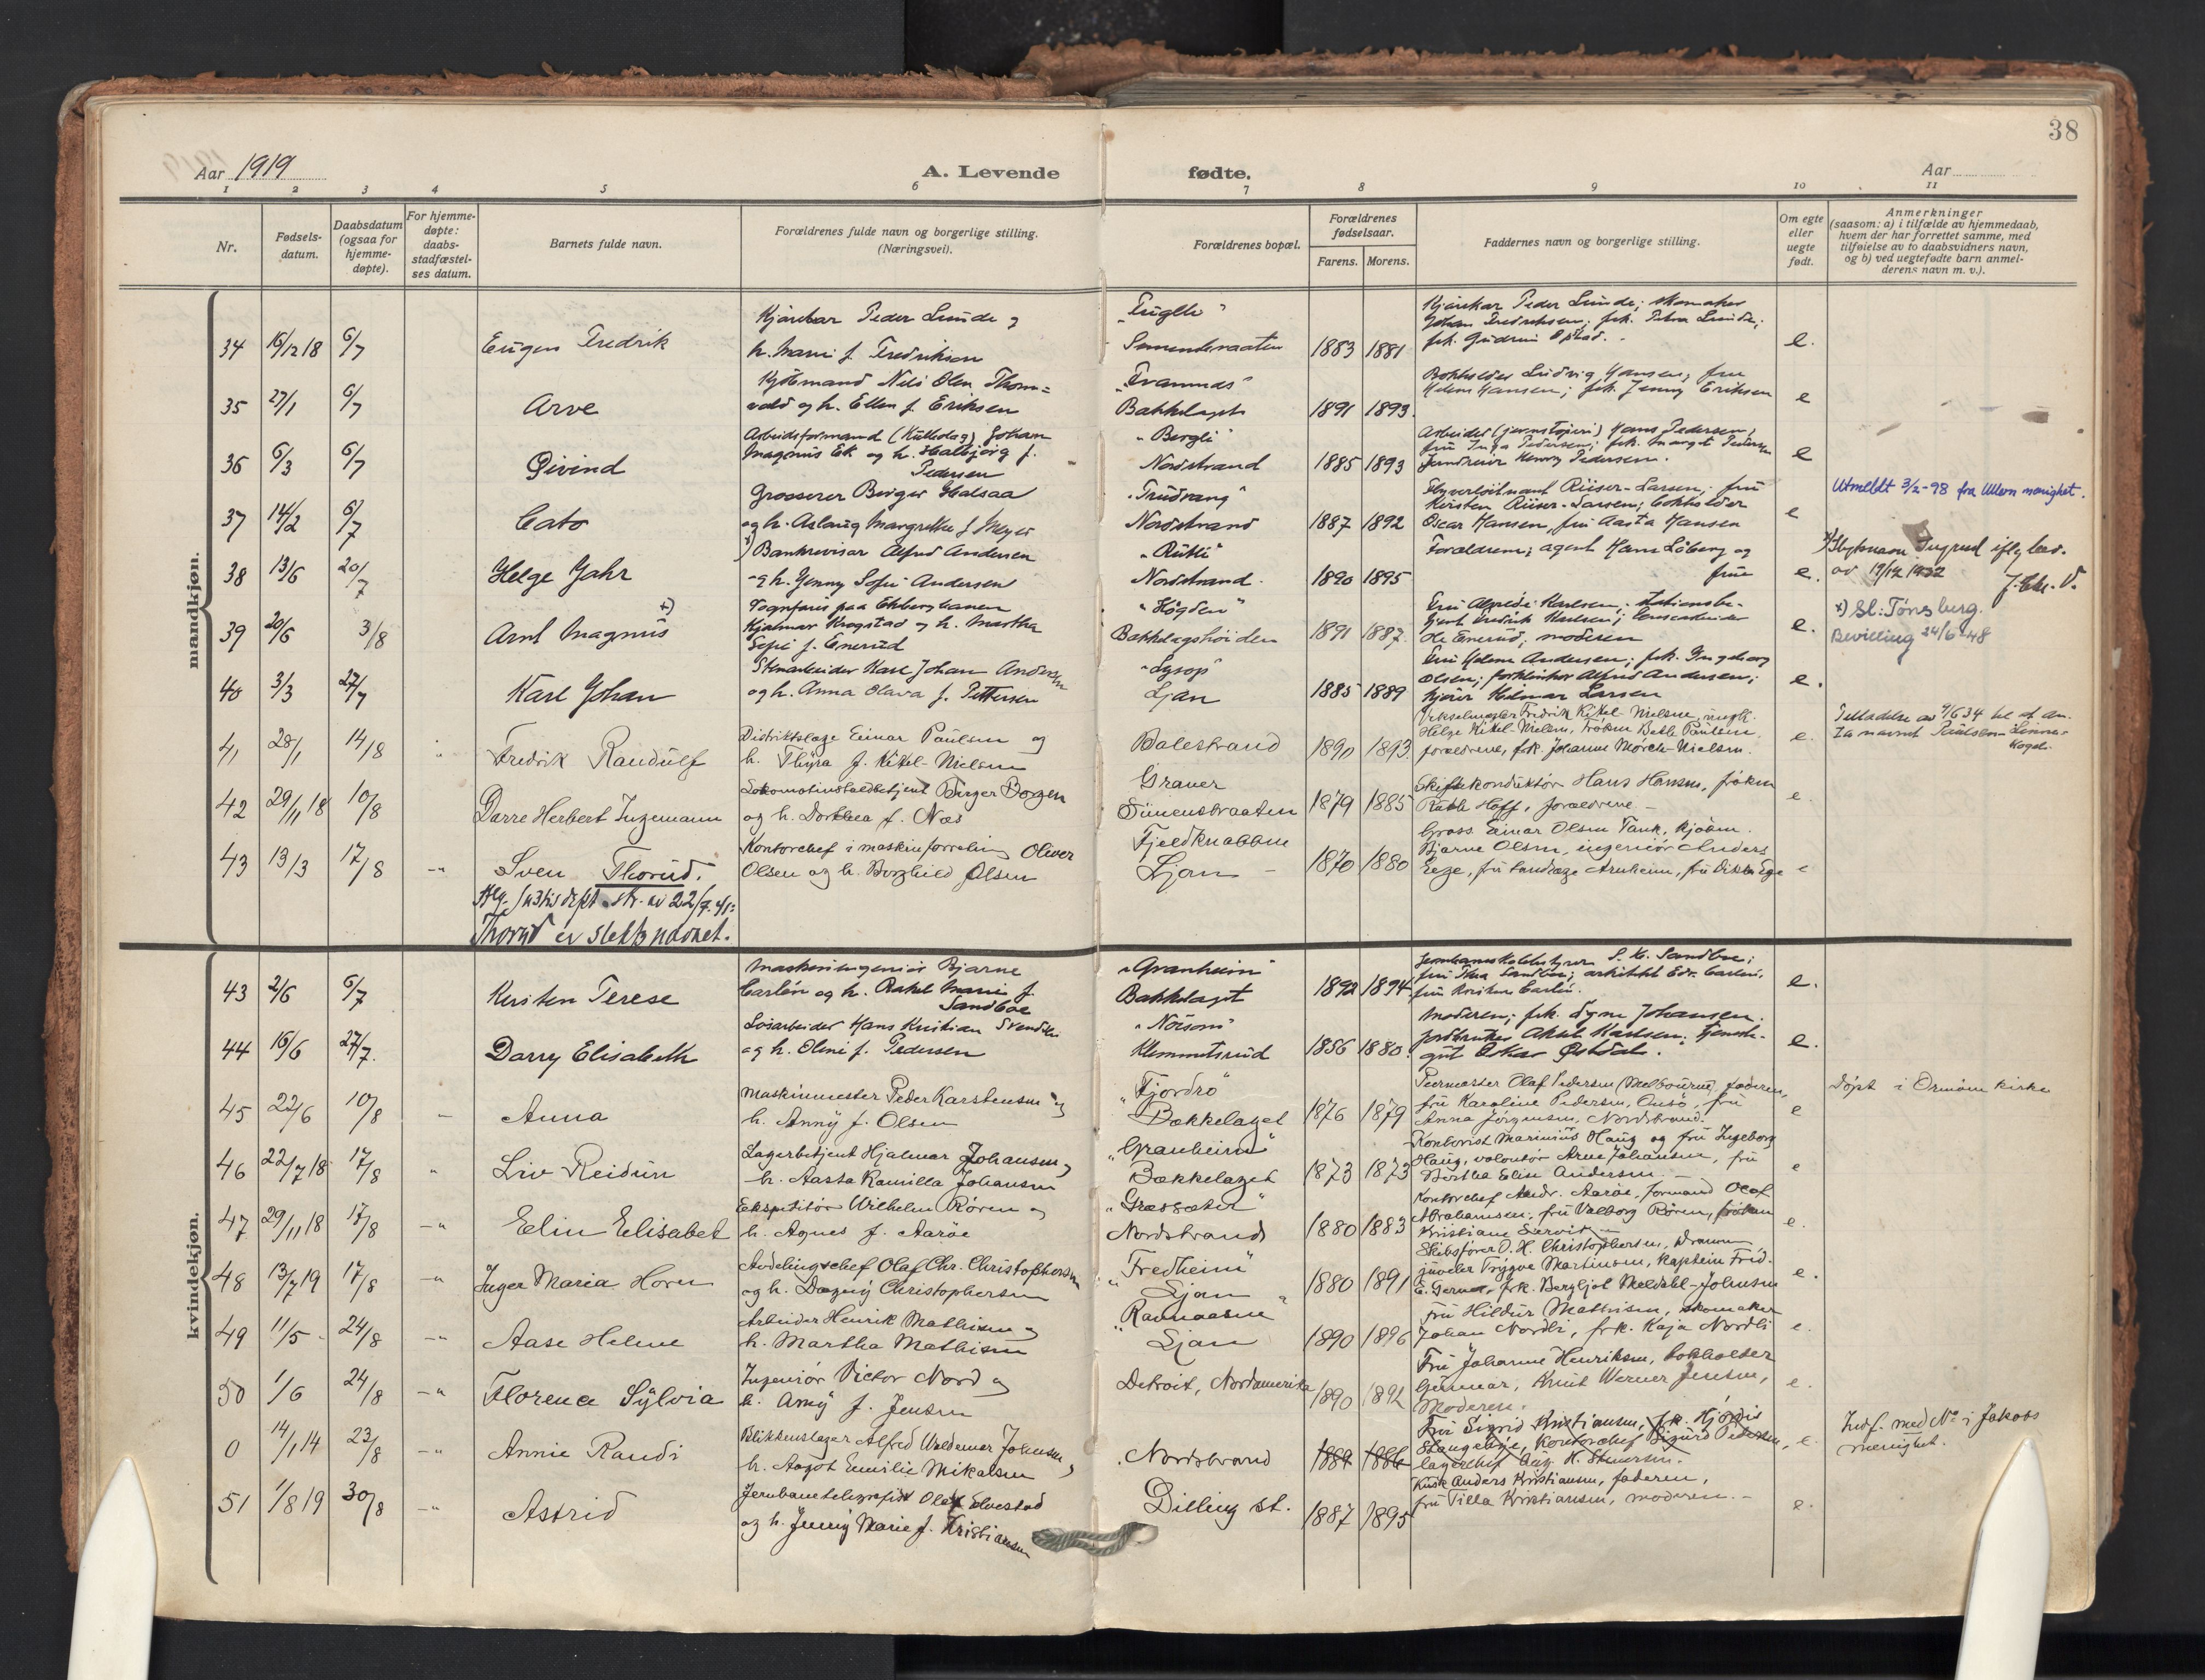 38
Aar 1919
A. Levende
fødte.
Aar
1 2 3 4 5 6 7 8 9 10 11
Nr.
Fødsels-
datum.
Daabsdatum
(ogsaa for
hjemme-
døpte).
For hjemme-
døpte:
daabs-
stadfæstel-
ses datum.
Barnets fulde navn.
Forældrenes fulde navn og borgerlige stilling.
(Næringsvei).
Forældrenes bopæl.
Forældrenes
fødselsaar.
Farens. Morens.
Faddernes navn og borgerlige stilling.
Om egte
eller
uegte
født.
Anmerkninger
(saasom: a) i tilfælde av hjemmedaab,
hvem der har forrettet samme, med
tilføielse av to daabsvidners navn,
og b) ved uegtefødte barn anmel-
derens navn m. v.).
mandkjøn.
34 15/12 18 6/7 Eugen Fredrik
Peder Lunde
h. Marie f. Fredriksen
1883 1881
Peder Lunde; skomaker
Johan Fredriksen; frk. Petra Lunde;
e.
35 27/1 6/7 Arve
Kjøbmand Nils Olen Thom=
vald og h. Ellen f. Eriksen
Bakkelaget
1891 1893.
Bokholder Ludvig Hansen; fru
Helene Hansen; frk. Jenny Eriksen
e
36 6/3 6/7 Øivind
Arbeidsformand Johan
Magnus Ek og h. Halbjørg f.
Pedersen
"Bergli"
Nordstrand
1885 1893
Hans Pedersen;
fru Inga Pedersen; frk. Margit Pedersen
Henry Pedersen.
e
37 14/2 6/7 Cato
Grosserer Birger Halsaa
og h. Aslaug Margrethe f. Meyer
"Trudvang"
Nordstrand
1887 1892
Flyverløitnant Riiser-Larsen; fru
Kirsten Riiser-Larsen; bokholder
Oscar Hansen, fru Aasta Hansen
e
Utmeldt 3/2-98 fra Ullern menighet.
38 13/6 20/7 Helge Jahr
x) Bankrevisor Alfred Andersen
og h. Jenny Sofie Andersen
"Rütli"
Nordstrand.
1890 1895
Forældrene; agent Hans Löberg og
frue
e.
39 20/6 3/8 Arnt Magnus x)
Vognfører paa Ekebergbanen
Hjalmar Krogstad og h. Martha
Sofie f. Enerud
"Høgden"
Bakkelagshöiden
1891 1887.
Ole Enerud; moderen
e.
x) Sl: Tønsberg.
Bevilling 24/6-48
40 3/3 27/7 Karl Johan
Stenarbeider Karl Johan Andersen
og h. Anna Olava f. Pettersen
Ljan
1885 1889
Fru Helene Andersen; frk. Ingeborg
Olsen; Alfred Andersen;
Hilmar Larsen
e.
41 28/1 14/8 Fredrik Randulf
Distriktslæge Einar Paulsen og
h. Thyra f. Kikel-Nielsen
Balestrand
1890 1893.
Vekselmægler Fredrik Kikel-Nielsen
Helge Kikel-Nielsen, frøken Betle Paulsen
forældrene, frk. Johanne Mørch-Nielsen.
e.
Tilladelse av 9/6 34 til at an-
ta navnet Paulsen-
42 29/11 18 10/8 Darre Herbert Ingemann
Birger Borgen
og h. Dorthea f. Næs
Graner
Simensbraaten
1879 1885
Skiftekonduktør Hans Hansen, frøken
Hoff, forældrene -
e
43 13/3 17/8 -"- Sven Thorud.
Kontorchef i maskinforretning Oliver
Olsen og h. Borghild Olsen
Fjeldknabben
Ljan -
1870 1880
Gross. Einar Olsen Tank, frøken
Bjarne Olsen, ingeniør Anders
Ege, fru landlæge Arnheim, fru Ege
e
22/9. 41:
Thorud er slektsnavnet.
kvindekjøn.
43 2/6 6/7 Kirsten Terese
Maskiningeniør Bjarne
Carlén og h. Rakel Marie f.
Sandboe
"Granheim"
Bakkelaget
1892 1894
S. K. Sandboe;
fru Thea Sandboe; arkitekt Edv. Carlén,
e.
44 16/6 27/7. Darry Elisabeth
Hans Kristian Svendsen
og h. Oline f. Pedersen
Klemmetsrud
1856 1880.
Moderen; frk. Signe Johansen.
Jordbruker Aksel Karlsen; tjeneste-
gut Oskar Østdal.
e.
45 22/6 10/8 - Anna
Maskinmester Peder Karstensen og
h. Anny f. Olsen
"Fjordro"
Bækkelaget
1876 1879
Olaf Pedersen (Melbourne), faderen,
fru Karoline Pedersen, Onsø, fru
Anna Jørgensen, Nordstrand.
e
Döpt i Ormöen kirke
46 22/7 18 17/8 " Liv Reidun
Lagerbetjent Hjalmar Johansen,
h. Aasta Kamilla Johansen
"Granheim"
Bækkelaget
1873 1873
Kontorist Marinius Haug og fru Ingeborg
Haug, volontør Arne Johansen, fru
Bertha Elise Andersen -
e
47 29/11 18 17/8 -"- Elin Elisabet
Ekspeditør Wilhelm Røren og
h. Agnes f. Aarøe
"Græssæter"
Nordstrand
1880 1883
Kontorchef Andr. Aarøe, formand Olaf
Abrahamsen, fru Valborg Røren, frøken
Kristiane
e.
48 13/7 19 17/8 -"- Inger Maria Horn
Avdelingschef Olaf Chr. Christophersen
og h. Dagny Christophersen
"Fredheim"
Ljan "
1880 1891
Skibsfører O. H. Christophersen,
juveler Trygve Martinsen, Kaptein Frid.
C. Gerner, frk. Bergljot Meldahl-Johnsen
e.
49 11/5 - 24/8 -"- Aase Helene
Arbeider Henrik Mathisen og
h. Martha Mathisen
"Ravnaasen
Ljan
1890 1896
Fru Hildur Mathisen, skomaker
Johan Nordli, frk. Kaja Nordli
e.
50 1/6 24/8 -"- Florence Sylvia
Ingeniør Victor Nord og
h. Amy f. Jensen
Detroit, Nordamerika
1890 1892
Fru Johanne Henriksen, bokholder
Gunnar, Knut Werner Jensen,
Moderen.
e.
0 14/1 14 23/8 -"- Annie Randi
Blikkenslager Alfred Waldemar Johansen,
h. Aagot Emilie Mikalsen
Nordstrand
1884 1886
Fru Sigrid Kristiansen, frk. Hjørdis
Stangebye, Kontorchef Sigurd Pedersen,
lagerchef Aug. H. Stenersen.
e.
Indf. med No i Jakobs
menighet.
51 1/8 19 30/8 -"- Astrid
Jernbanetelegrafist Olaf Elvestad
og h. Jenny Marie f. Kristiansen
Dilling st.
1887 1895
Kusk Anders Kristiansen, faderen,
fru Tilla Kristiansen, moderen. -
e.